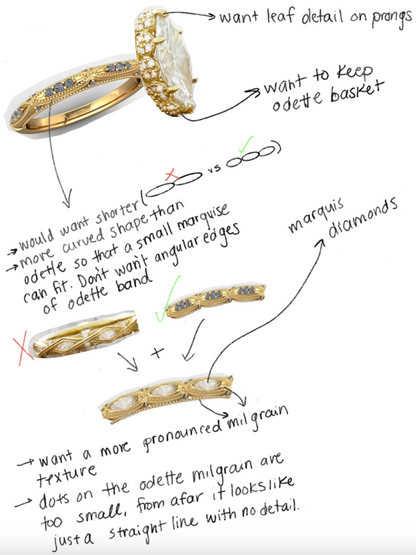 → want leaf detail on prongs
→ want to keep
odette basket
→ would want shorter ( vs )
→ more curved shape than
odette so that a small marquise
can fit. Don't want angular edges
of odette band
marquis
diamonds
+
→ want a more pronounced milgrain
texture
→ dots on the odette milgrain are
too small, from afar it looks like
just a straight line with no detail.